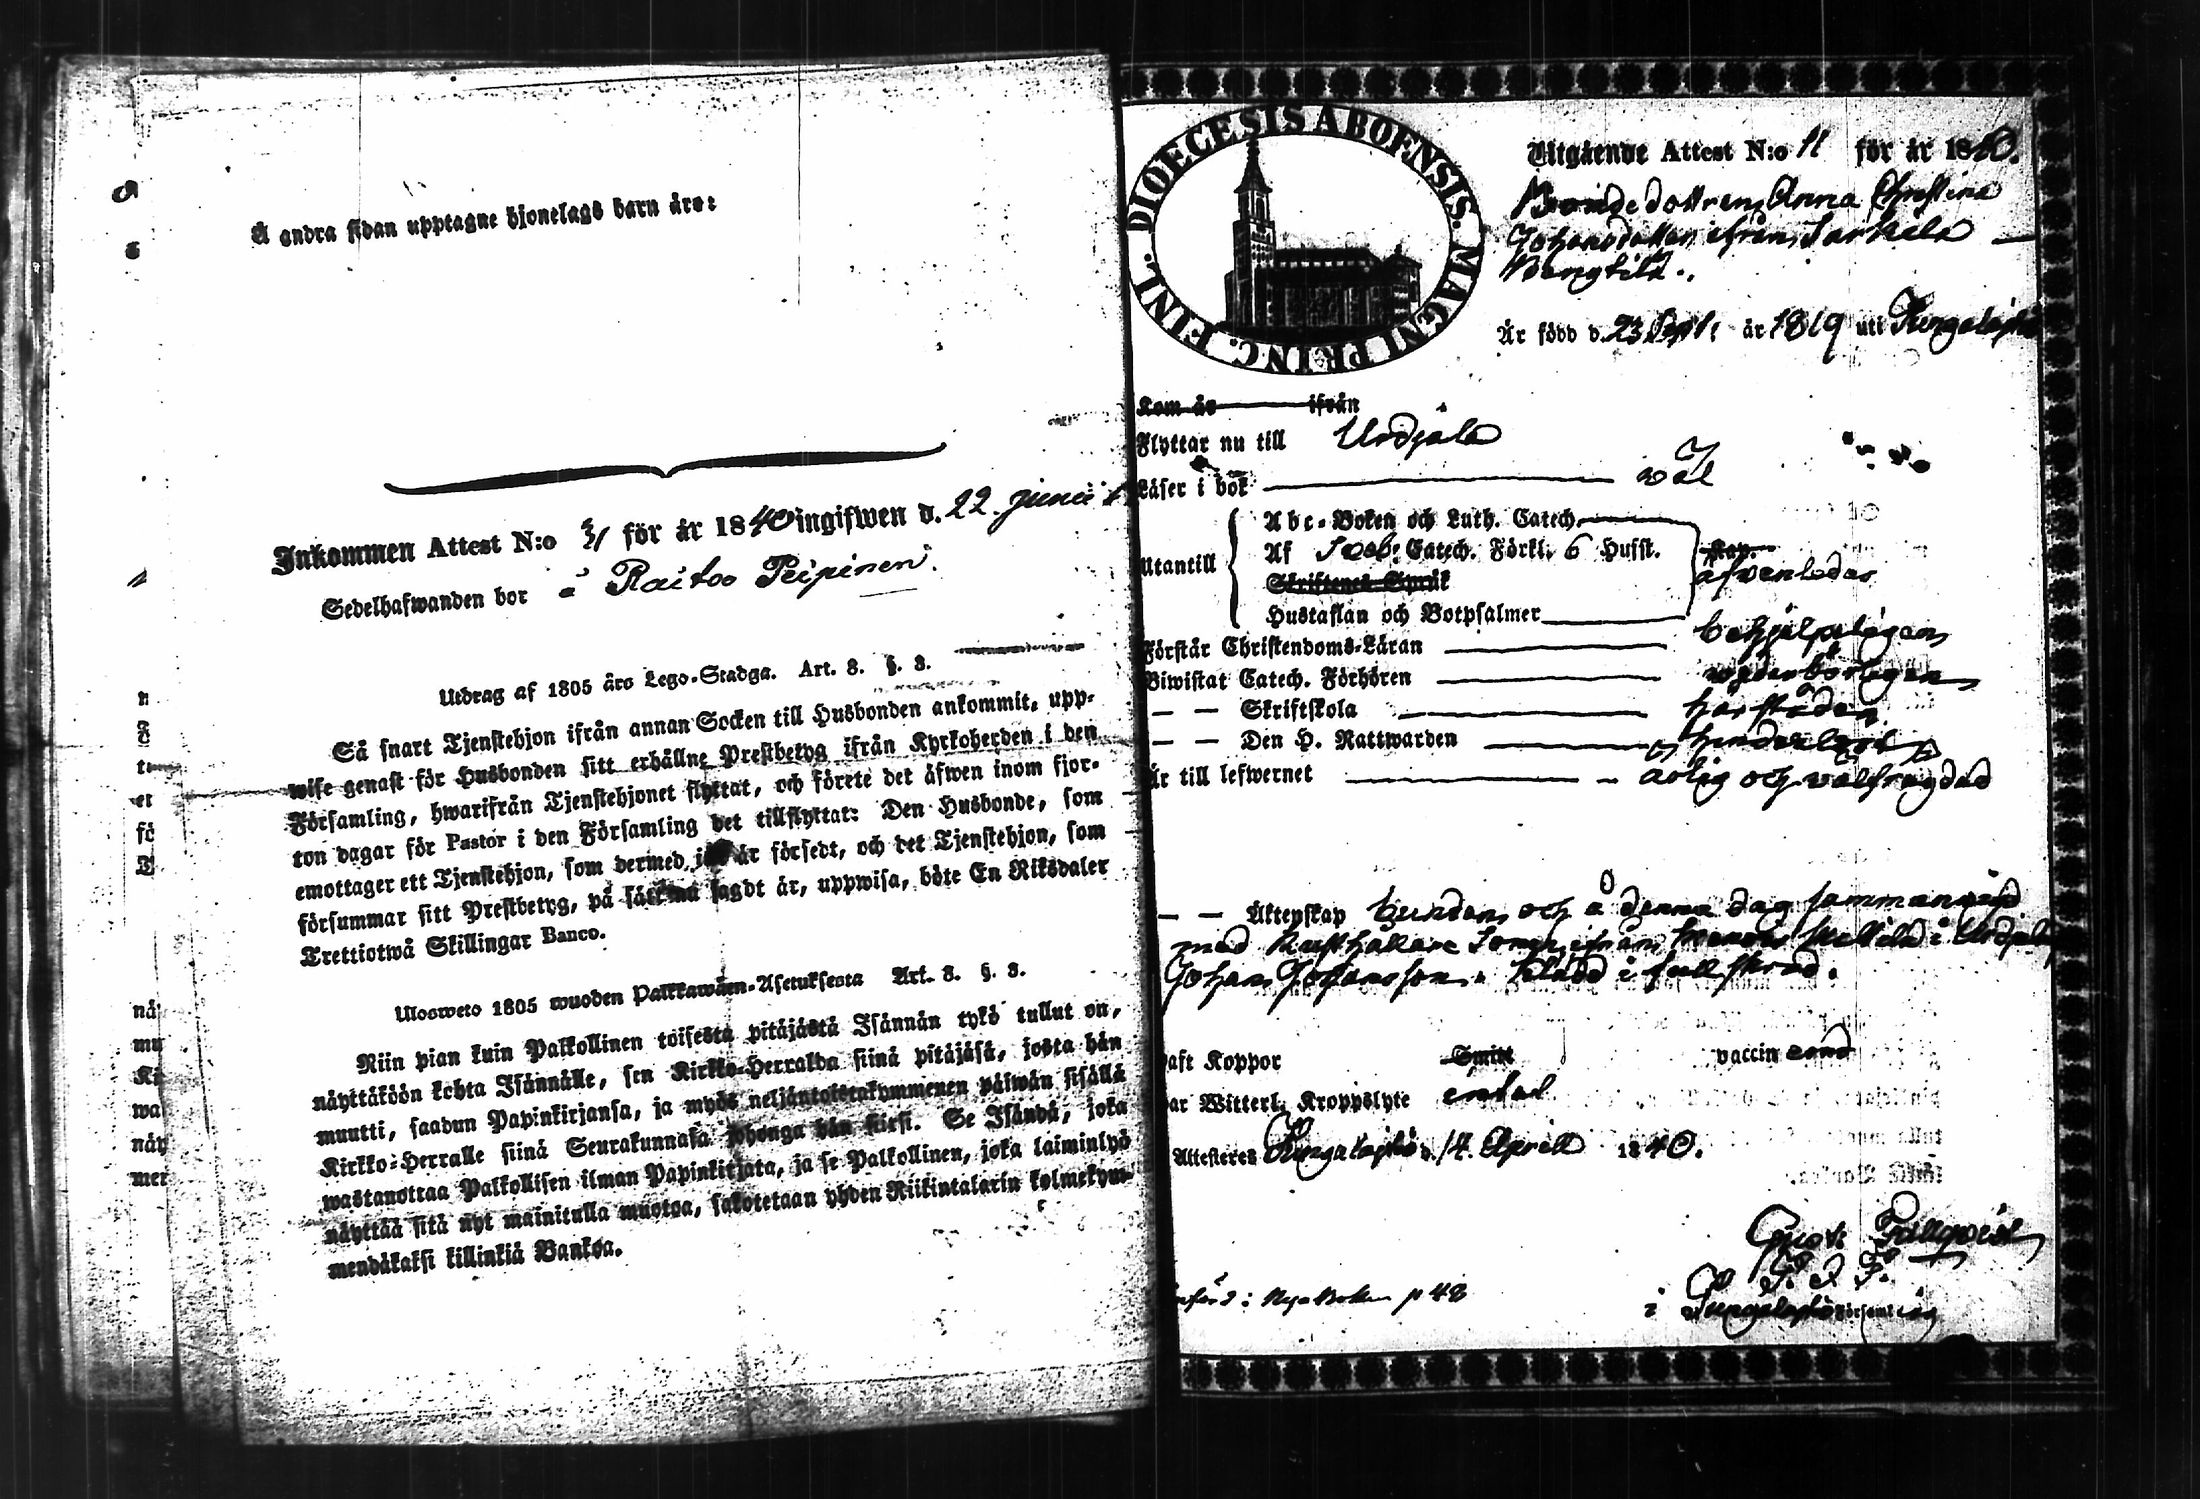 Å andra sidan upptagne hjonelags barn äro:
Inkommen Attest N:o 31 för år 1840 ingifwen d. 22 junii
Sedelhafwanden bor å Raitoo Peipinen.
Utdrag af 1805 års Lego-Stadga. Art. 8. §. 3.
Så snart Tjenstehjon ifrån annan Socken till Husbonden ankommit, upp-
wise genast för Husbonden sitt erhållne Prestbetyg ifrån Kyrkoherden i den
Församling, hwarifrån Tjenstehjonet flyttat, och förete det äfwen inom fjor-
ton dagar för Pastor i den Församling det tillflyttat: Den Husbonde, som
emottager ett Tjenstehjon, som dermed är försedt, och det Tjenstehjon, som
försummar sitt Prestbetyg, på sätt nu sagdt är, uppwisa, böte En Riksdaler
Trettiotwå Skillingar Banco.
Ulosweto 1805 wuoden Palkkawäen-Asetuksesta Art. 8. §. 3.
Niin pian kuin Palkollinen toisesta pitäjästä Isännän tykö tullut on,
näyttäköön kohta Isännälle, sen Kirkko-Herralda siinä pitäjäsä, josta hän
muutti, saadun Papinkirjansa, ja myös neljäntoistakymmenen päiwän sisällä
Kirkko-Herralle siinä Seurakunnasa johonga hän siirsi. Se Isändä, joka
wastanottaa Palkollisen ilman Papinkirjata, ja se Palkollinen, joka laiminlyö
näyttää sitä nyt mainitulla muotoa, sakotetaan yhden Riikintalarin kolmekym-
mendäkaksi killinkiä Bankoa.
DIOECESIS ABOENSIS. MAGNI PRINC. FINL.
Utgående Attest N:o 11 för år 1840.
Bondedottren Anna Christina
Johansdotter ifrån Sarkela
Bengtilä.
Är född d. 23 Sept. år 1819 uti Kungalajsio
Kom år ifrån
Flyttar nu till Urdjala
Läser i bok wäl
Utantill
Abc-Boken och Luth. Catech.
Af Sweb: Catech. Förkl. 6 Hufst.
Skriftenes Språk
Hustaflan och Botpsalmer
äfvenledes
Förstår Christendoms-Läran behjelpeligen
Biwistat Catech. Förhören wederbörligen
— — Skriftskola härstädes
— — Den H. Nattwarden
Är till lefwernet ärlig och välfrägdad
— — Äktenskap bunden och å denna dag sammanvigd
med Rusthållare Sonen ifrån i Urdjala
Johan Johansson. Klädd i full skrud.
Haft Koppor Smitt vaccin ernad
Har Witterl. Kroppslyte
Attesteres Kungalajsio d. 14 Aprill 1840.
Gust. Fallqvist
införd i Nya Boken p 48
i Kungalajsio Församling